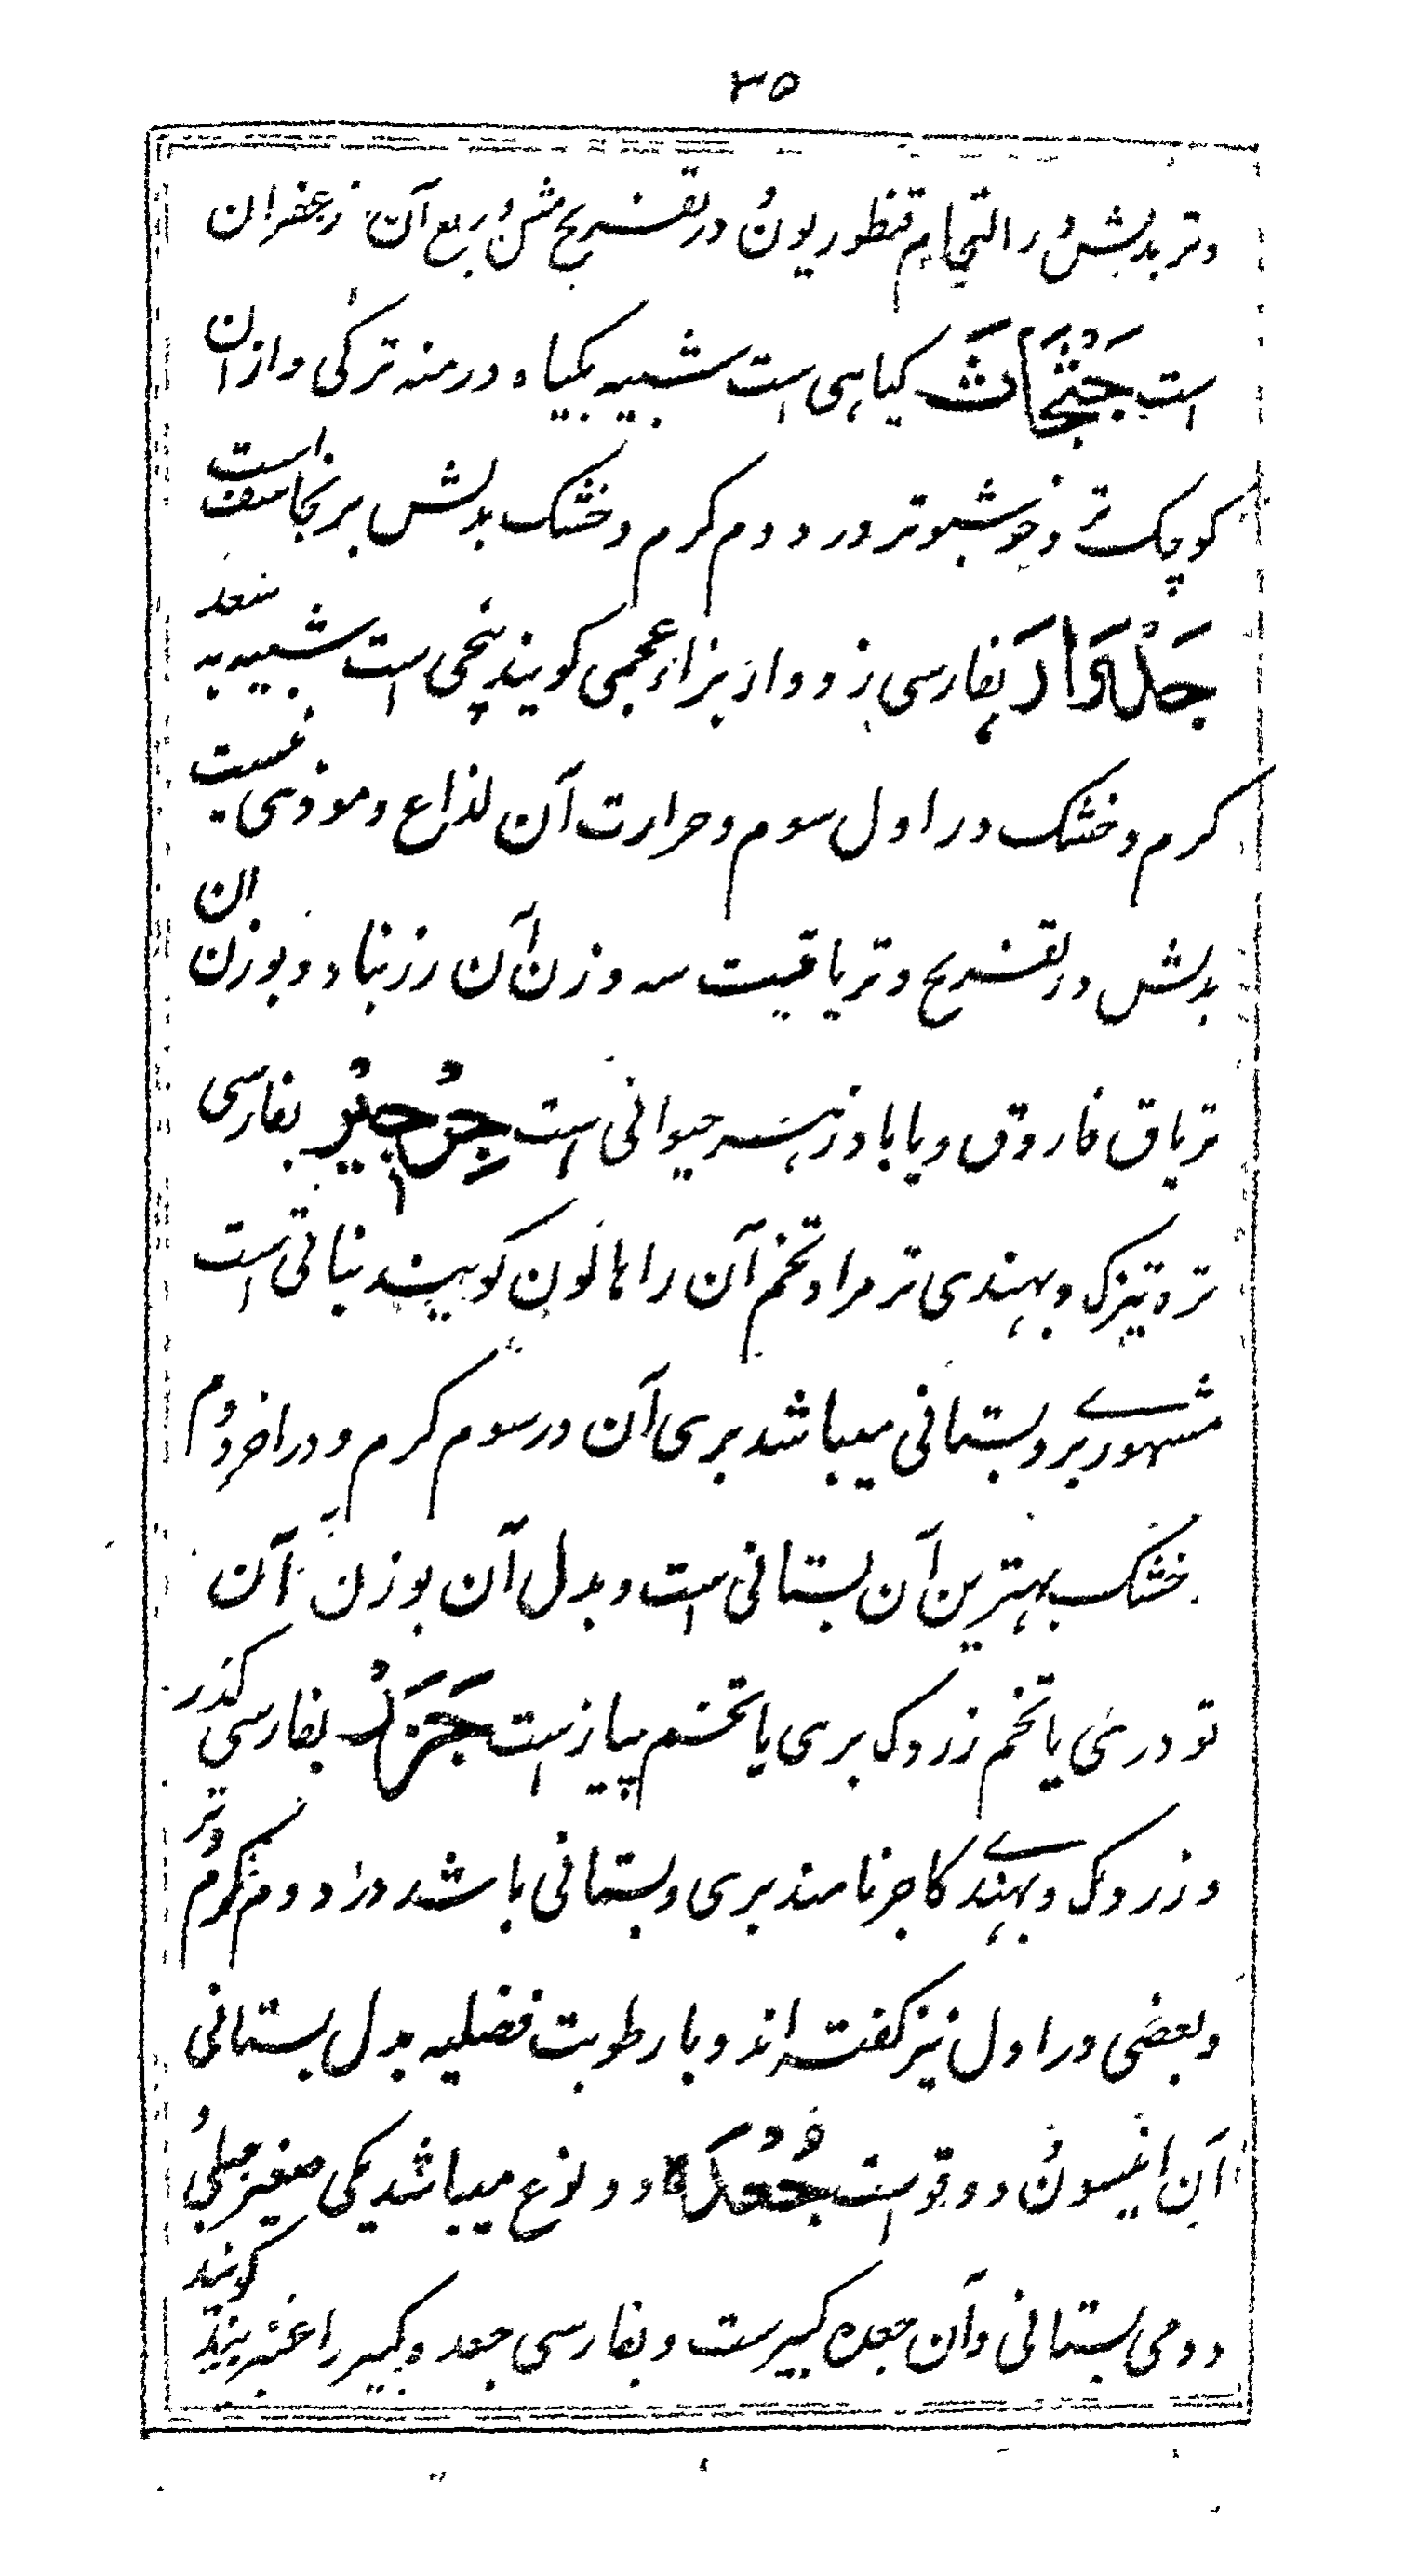 ۳۵
وتر بدلش در التحام قنطوریون و در تفریح مثل و ربع آن زعفران
است جَثْجَاثَ کیاهی است شبیه بکیاه درمنه ترکی و ازان
کوچک تر و خوشبوتر در دوم کرم و خشک بدلش برنجاسف است
جَدْوَارَ بفارسی زدوار بزاء عجمی کویند بیخی است شبیه به سعد
کرم و خشک در اول سوم و حرارت آن لذاع و موذی نیست
بدلش در تفریح و تریاقیت سه وزن آن زرنباد و بوزن ان
تریاق فاروق و یا بادزهر حیوانی است جِرْجِیْر بفارسی
تره تیزک و بهندی ترمرا و تخم آن را هالون کویند نباتی است
مشهور بری و بستانی میباشد بری آن در سوم کرم و در اخر دوم
خشک بهترین آن بستانی است و بدل آن بوزن آن
تودری یا تخم زردک بری یا تخم پیاز است جَزَرْ بفارسی کذر
و زردک و بهندی کاجر نامند بری و بستانی باشد در دوم کرم وتر
و بعضی در اول نیز کفته اند و با رطوبت فضلیه بدل بستانی
آن انیسون و دوقو است جُعْدَة دو نوع میباشد یکی صغیر جبلی و
دومی بستانی و آن جعده کبیرست و بفارسی جعده کبیر را عنبربید کویند